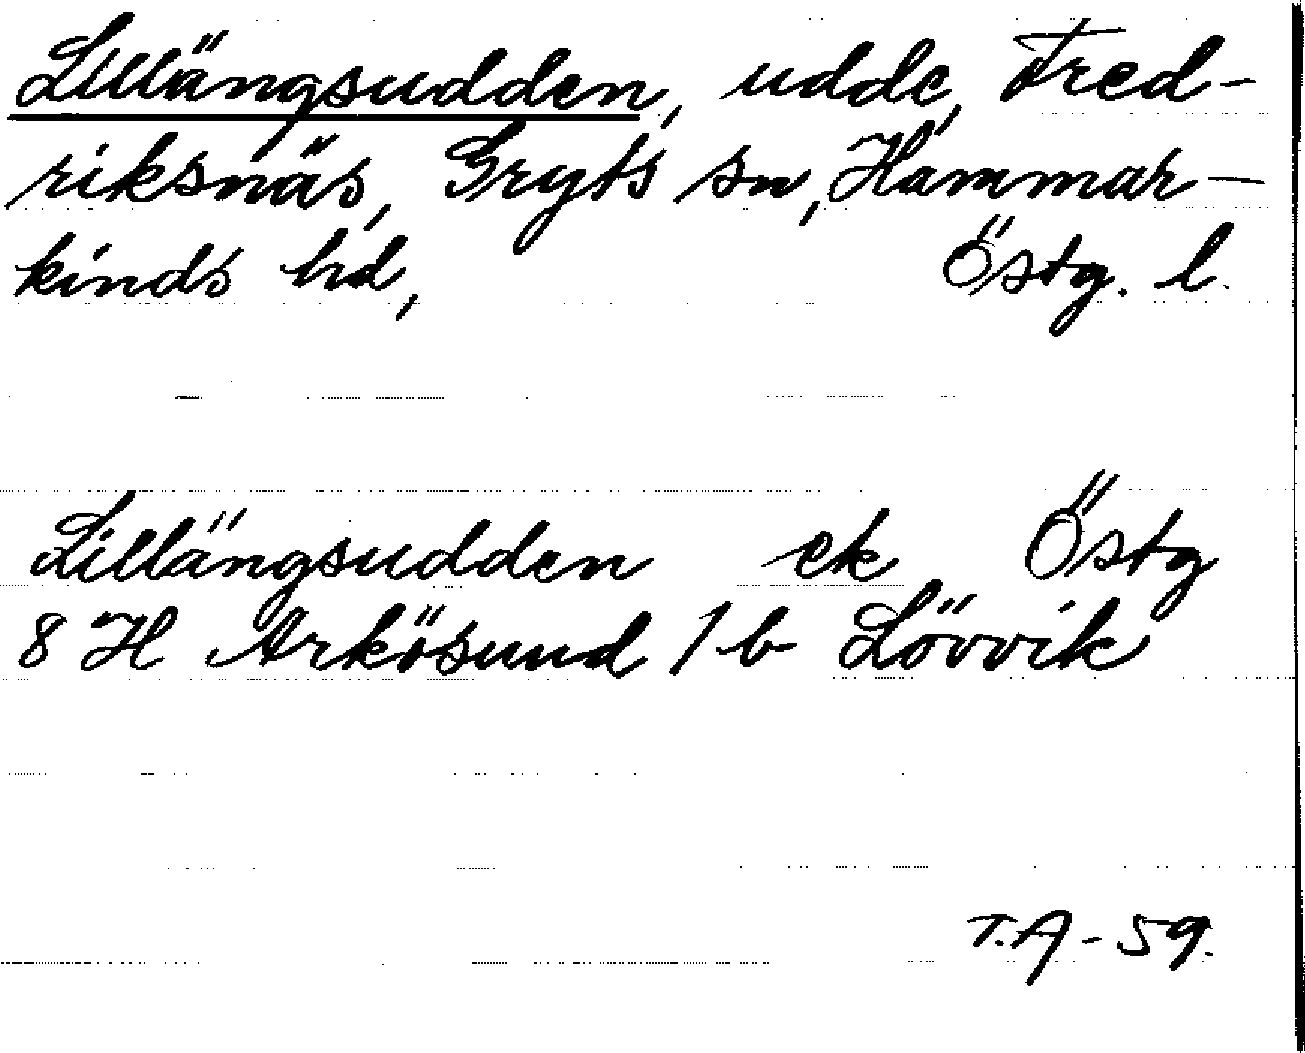 Lillängsudden, udde, Fred-
riksnäs, Gryts sn, Hammar-
kinds hd, Östg. l.
Lillängsudden ek Östg
8 H Arkösund / b Lövvik
T.A - 59.